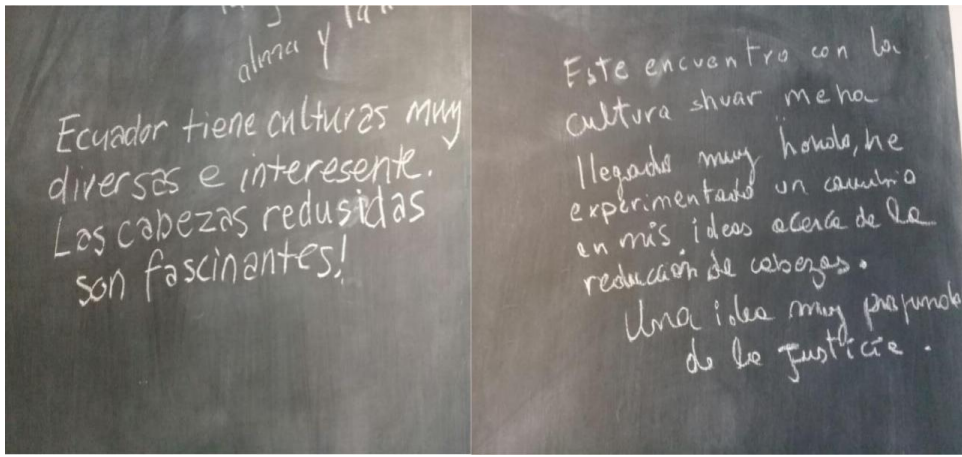 alma y
Ecuador tiene culturas muy
diversas e interesente.
Las cabezas redusidas
son fascinantes!
Este encuentro con la
cultura shuar me ha
llegado muy hondo, he
experimentado un cambio
en mis ideas acerca de la
reducción de cabezas.
Una idea muy profunda
de la justicia.